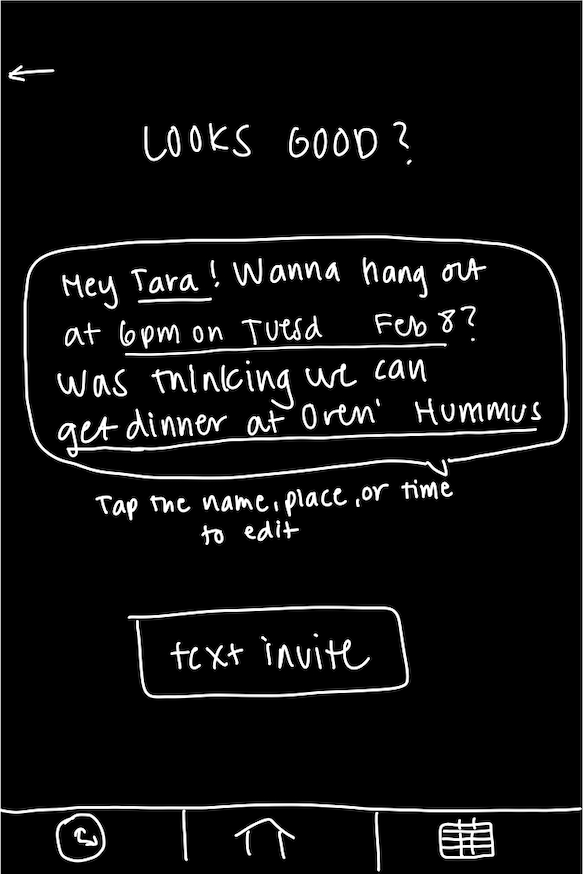 LOOKS GOOD?
Hey Tara! Wanna hang out
at 6pm on Tuesd Feb 8?
Was thinking we can
get dinner at Oren' Hummus
Tap the name, place, or time
to edit
text invite